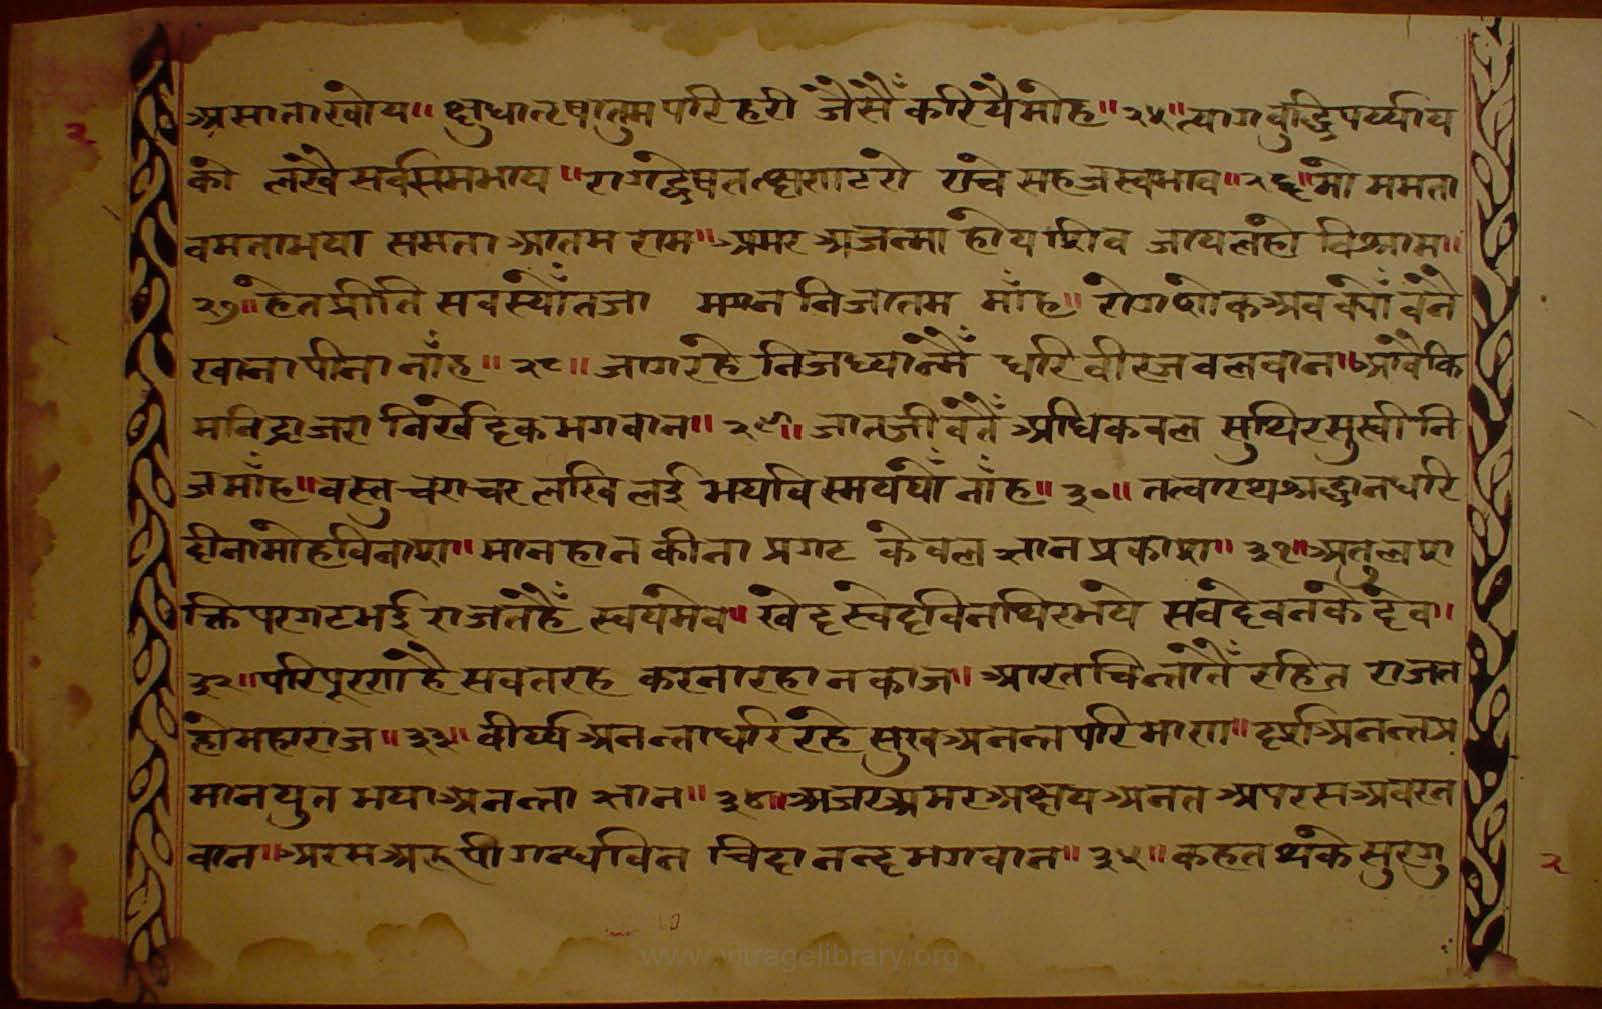 असाताखोय॥ क्षुधातृषातुमपरिहरी जैसैंकरियैमोह॥२५॥त्यागबुद्धिपर्य्याय
को लखै सर्वसमभाय॥रागद्वेषतत्क्षणटरो राचे सहजस्वभाव॥२६॥मो ममता
वमताभया समता आतम राम॥अमर अजन्मा होय शिव जाय लहो विश्राम॥
२७॥हेतप्रीति सबस्योंतजा मगन निजातम माँह॥ रोगशोकअबक्योंबनै
खानापीनानाँह॥२८॥जागरहेनिजध्यानमैं धरिवीरजबलवान॥आवैकि
मनिद्राजरा निखेदकभगवान॥२९॥जातजीवतैं अधिकबल सुथिरसुखीनि
जमाँह॥वस्तु चराचर लखि लई भयविस्मययोंनाँह॥३०॥तत्वारथश्रद्धानधरि
दीनामोहविनाश॥मानहानकीना प्रगट केवल ज्ञान प्रकाश॥३१॥अतुलश
क्तिपरगटभई राजतहैं स्वयमेव॥खेदस्वेदविनथिरभये सबदेवनकेदेव॥
३२॥परिपूरणहै सबतरह करनारहानकाज॥आरतचिन्तातैं रहित राजत
होमहाराज॥३३॥वीर्य्य अनन्ताधरिरहे सुखअनन्तपरिमाण॥दृशअनन्तअ
मानयुत भया अनन्ता ज्ञान॥३४॥अजरअमरअक्षयअनत अपरसअवरन
वान॥अरसअरूपीगन्धविन चिदानन्दभगवान॥३५॥कहत थके सुरगु
२
२
www.vitragelibrary.org